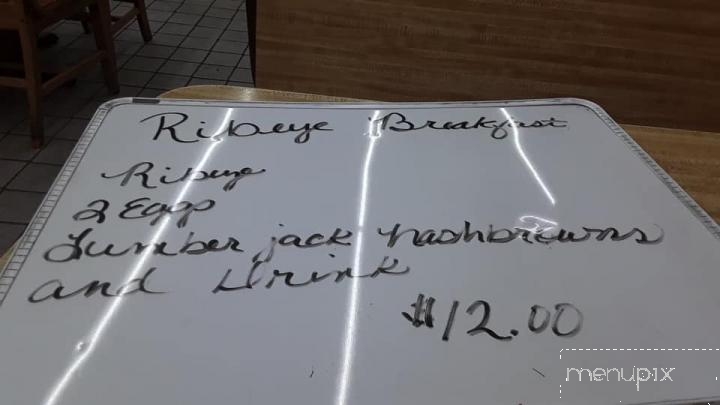 Ribeye Breakfast
Ribeye
2 Eggs
Lumber jack hashbrowns
and Drink
$12.00
menupix